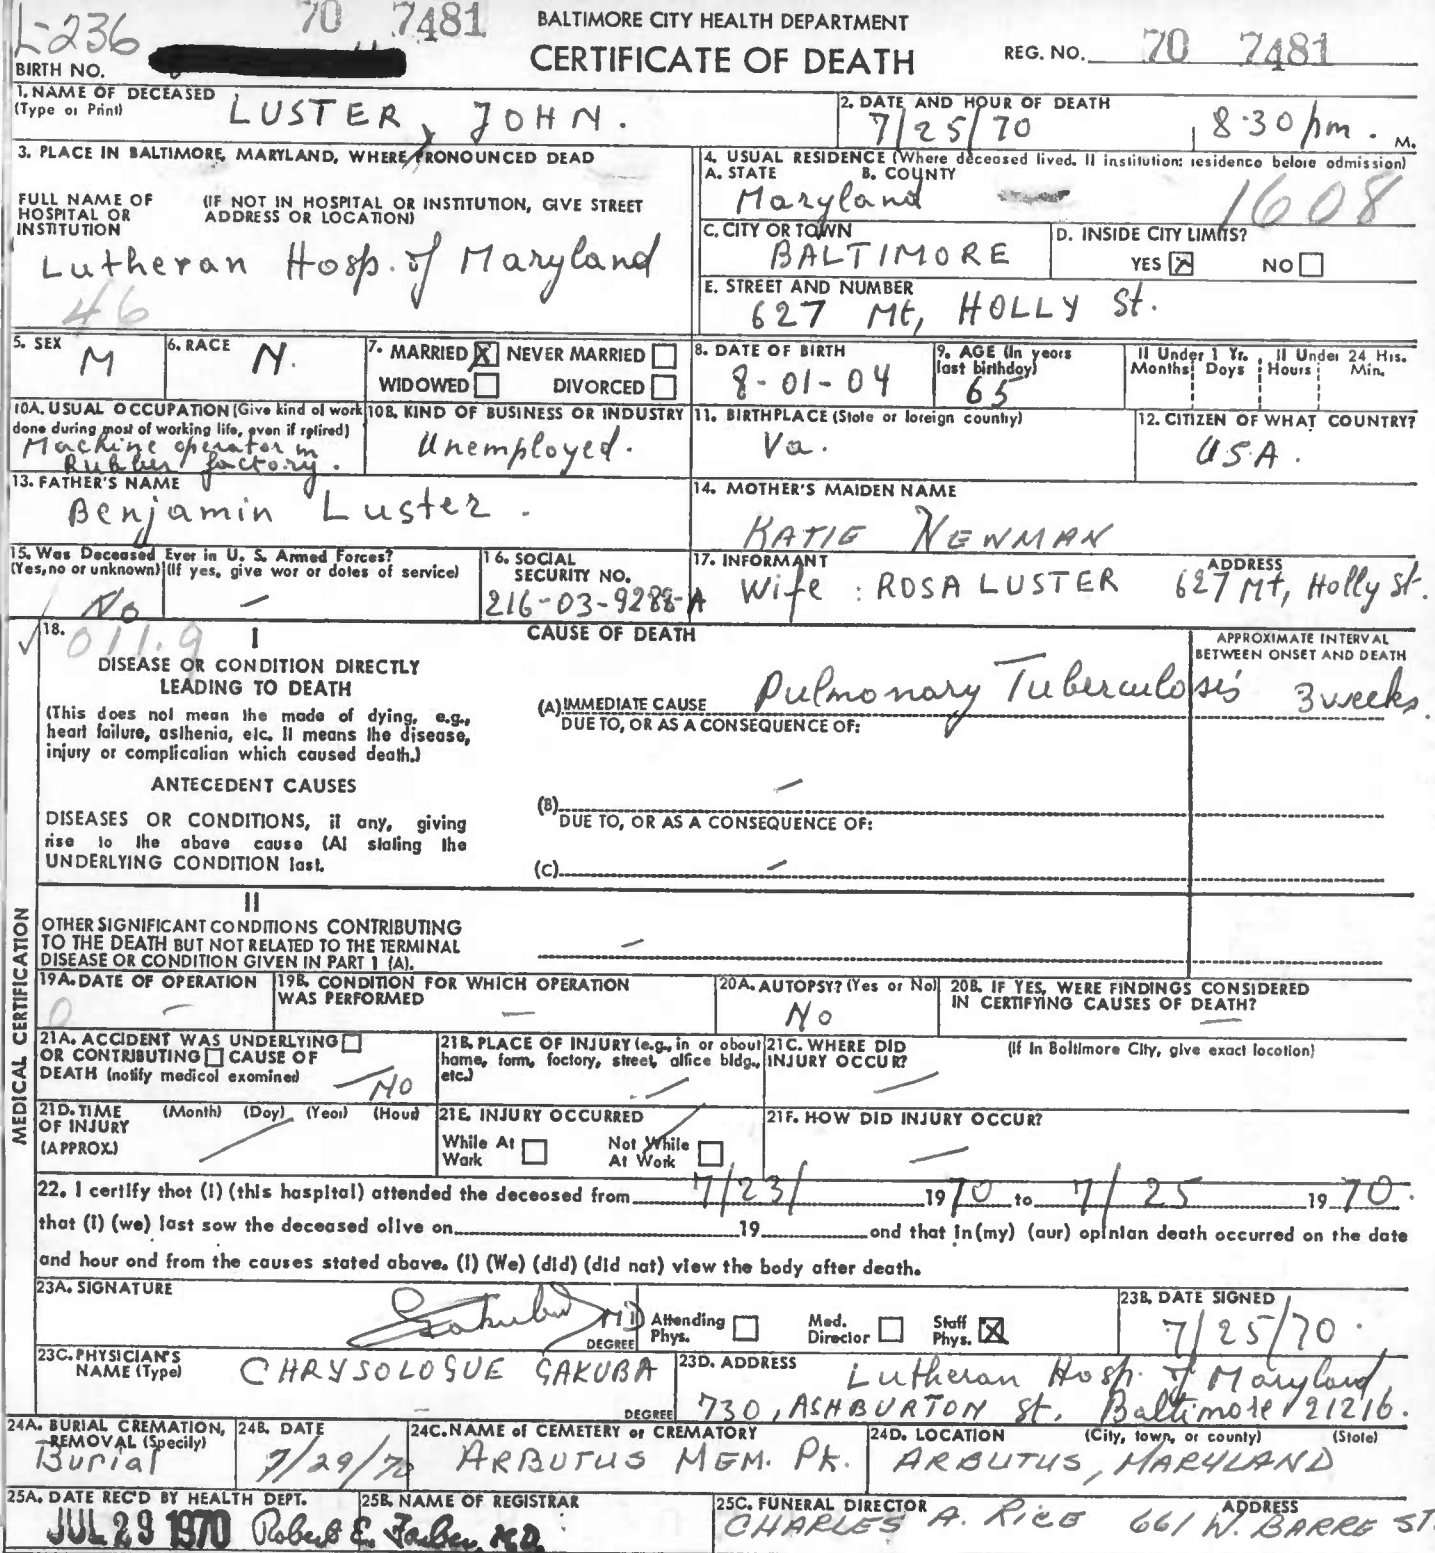 L-236 70 7481 BALTIMORE CITY HEALTH DEPARTMENT
CERTIFICATE OF DEATH REG. NO. 70 7481
BIRTH NO.
1. NAME OF DECEASED (Type or Print) LUSTER, JOHN.
2. DATE AND HOUR OF DEATH 7/25/70 8:30/pm. M.
3. PLACE IN BALTIMORE, MARYLAND, WHERE PRONOUNCED DEAD
FULL NAME OF HOSPITAL OR INSTITUTION (IF NOT IN HOSPITAL OR INSTITUTION, GIVE STREET ADDRESS OR LOCATION)
Lutheran Hosp. of Maryland
46
4. USUAL RESIDENCE (Where deceased lived. If institution: residence before admission)
A. STATE B. COUNTY
Maryland 1608
C. CITY OR TOWN BALTIMORE
D. INSIDE CITY LIMITS? YES NO
E. STREET AND NUMBER
627 Mt, HOLLY St.
5. SEX M
6. RACE N.
7. MARRIED NEVER MARRIED
WIDOWED DIVORCED
8. DATE OF BIRTH 8-01-04
9. AGE (In years last birthday) 65
If Under 1 Yr. Months Days If Under 24 Hrs. Hours Min.
10A. USUAL OCCUPATION (Give kind of work done during most of working life, even if retired)
Machine operator in
Rubber factory.
10B. KIND OF BUSINESS OR INDUSTRY
Unemployed.
11. BIRTHPLACE (State or foreign country)
Va.
12. CITIZEN OF WHAT COUNTRY?
USA.
13. FATHER'S NAME
Benjamin Luster.
14. MOTHER'S MAIDEN NAME
KATIE NEWMAN
15. Was Deceased Ever in U. S. Armed Forces?
(Yes, no or unknown) (If yes, give war or dates of service)
No —
16. SOCIAL SECURITY NO.
216-03-9288-A
17. INFORMANT ADDRESS
Wife : ROSA LUSTER 627 Mt, Holly St.
18. 011.9 I CAUSE OF DEATH APPROXIMATE INTERVAL BETWEEN ONSET AND DEATH
DISEASE OR CONDITION DIRECTLY
LEADING TO DEATH
(This does not mean the mode of dying, e.g.,
heart failure, asthenia, etc. It means the disease,
injury or complication which caused death.)
(A) IMMEDIATE CAUSE Pulmonary Tuberculosis 3 weeks.
DUE TO, OR AS A CONSEQUENCE OF:
ANTECEDENT CAUSES
DISEASES OR CONDITIONS, if any, giving
rise to the above cause (A) stating the
UNDERLYING CONDITION last.
(B) —
DUE TO, OR AS A CONSEQUENCE OF:
(C) —
II
OTHER SIGNIFICANT CONDITIONS CONTRIBUTING
TO THE DEATH BUT NOT RELATED TO THE TERMINAL
DISEASE OR CONDITION GIVEN IN PART 1 (A).
—
MEDICAL CERTIFICATION
19A. DATE OF OPERATION
0 —
19B. CONDITION FOR WHICH OPERATION WAS PERFORMED
—
20A. AUTOPSY? (Yes or No)
No
20B. IF YES, WERE FINDINGS CONSIDERED IN CERTIFYING CAUSES OF DEATH?
—
21A. ACCIDENT WAS UNDERLYING
OR CONTRIBUTING CAUSE OF
DEATH (notify medical examined)
— NO
21B. PLACE OF INJURY (e.g., in or about home, farm, factory, street, office bldg., etc.)
—
21C. WHERE DID INJURY OCCUR? (If in Baltimore City, give exact location)
—
21D. TIME OF INJURY (APPROX.) (Month) (Day) (Year) (Hour)
21E. INJURY OCCURRED
While At Work Not While At Work
21F. HOW DID INJURY OCCUR?
—
22. I certify that (I) (this hospital) attended the deceased from 7/23/ 1970 to 7/25 1970.
that (I) (we) last saw the deceased alive on 19 and that in (my) (our) opinion death occurred on the date
and hour and from the causes stated above. (I) (We) (did) (did not) view the body after death.
23A. SIGNATURE
Gakuba MD DEGREE
Attending Phys. Med. Director Staff Phys.
23B. DATE SIGNED
7/25/70.
23C. PHYSICIAN'S NAME (Type)
CHRYSOLOGUE GAKUBA DEGREE
23D. ADDRESS Lutheran Hosp. of Maryland
730, ASHBURTON St. Baltimore 21216.
24A. BURIAL CREMATION, REMOVAL (Specify)
Burial
24B. DATE
7/29/70
24C. NAME of CEMETERY or CREMATORY
ARBUTUS MEM. PK.
24D. LOCATION (City, town, or county) (State)
ARBUTUS, MARYLAND
25A. DATE REC'D BY HEALTH DEPT.
JUL 29 1970
25B. NAME OF REGISTRAR
Robert E. Farber, M.D.
25C. FUNERAL DIRECTOR ADDRESS
CHARLES A. RICE 661 W. BARRE ST.